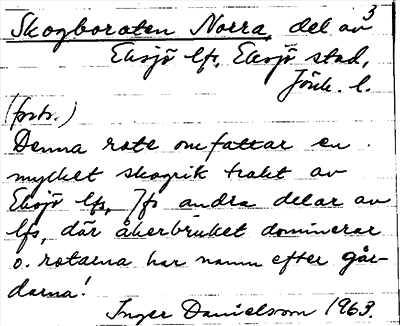 3
Skogboraten Norra, del av
Eksjö lfs, Eksjö stad,
Jönk. l.
(forts.)
Denna rote omfattar en
mycket skogrik trakt av
Eksjö lfs, Jfr andra delar av
lfs, där åkerbruket dominerar
o. rotarna har namn efter går-
darna!
Inger Danielsson 1963.